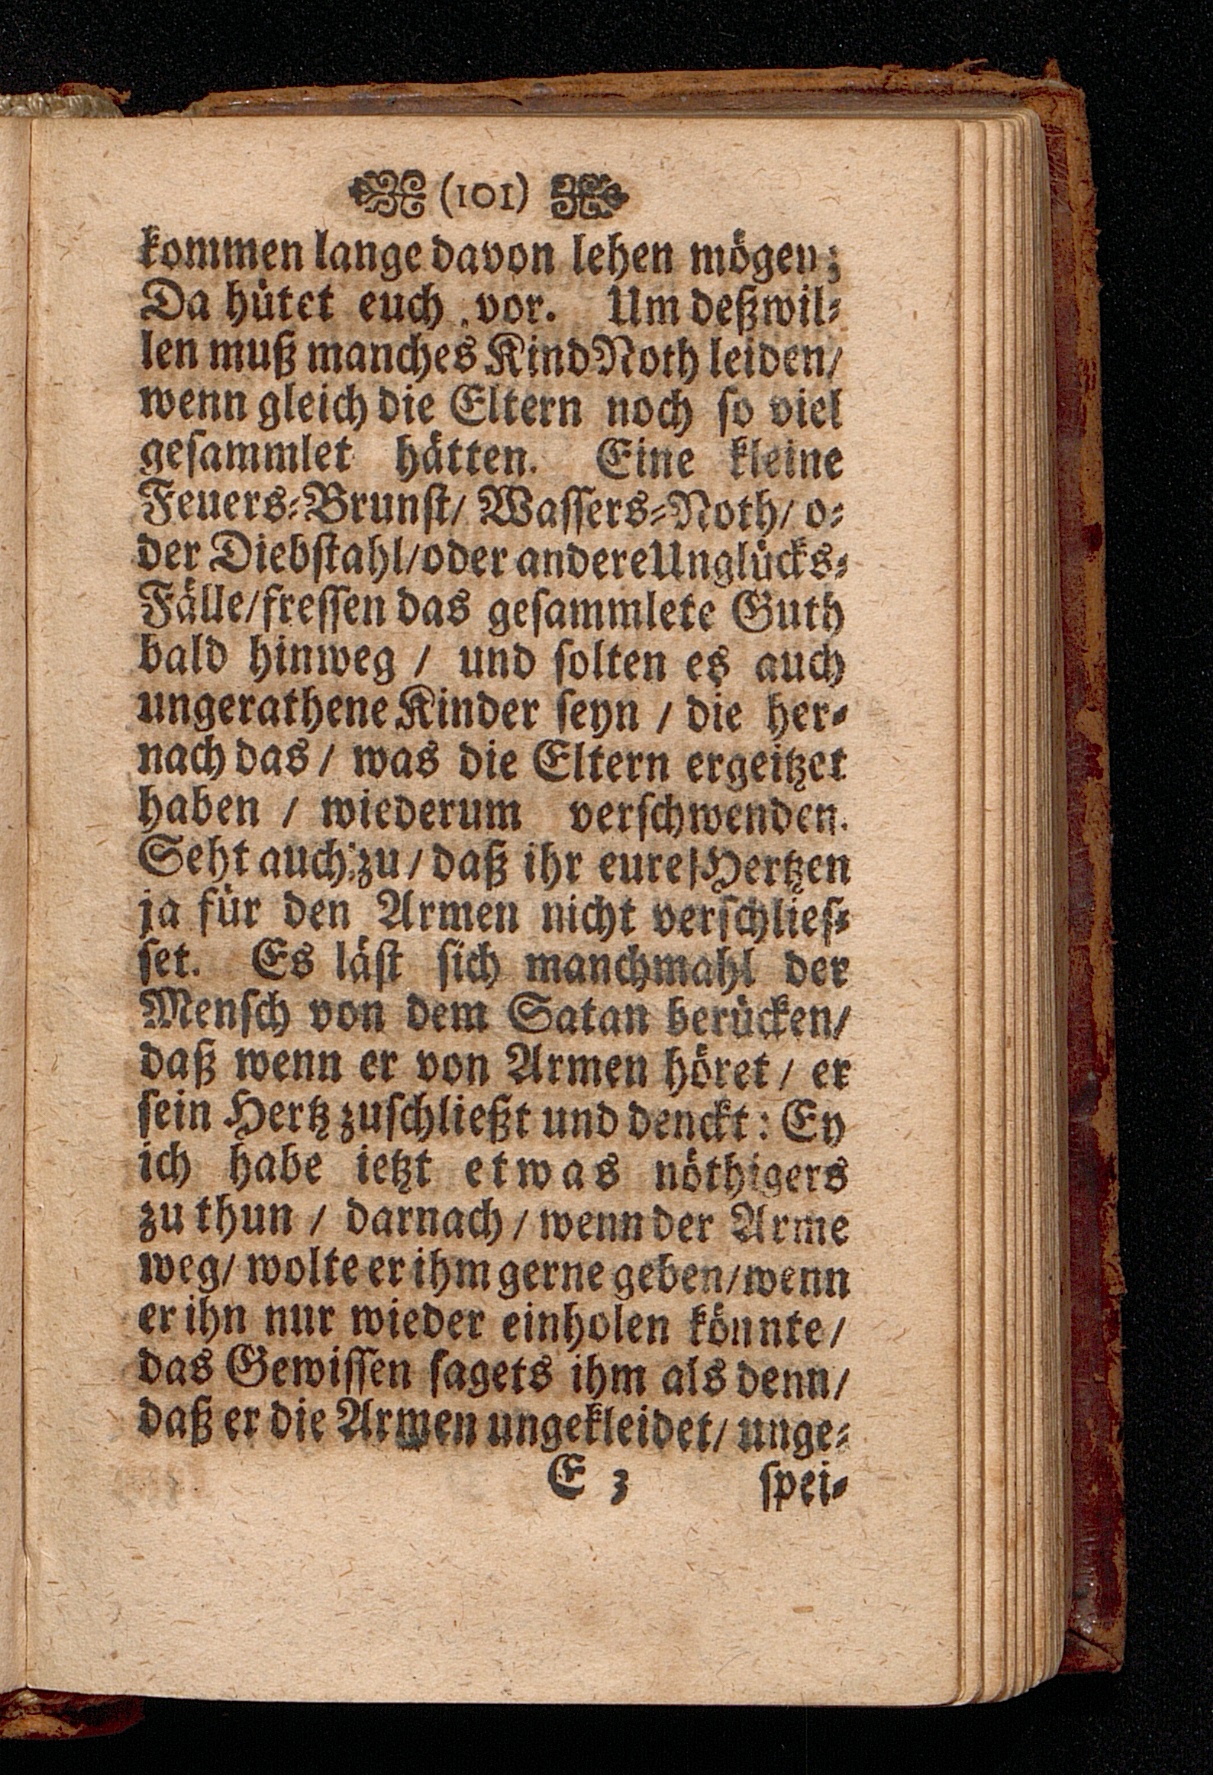 (101)
kommen lange davon lehen mögen;
Da hütet euch vor. Um deßwil-
len muß manches Kind Noth leiden/
wenn gleich die Eltern noch so viel
gesammlet hätten. Eine kleine
Feuers-Brunst/ Wassers-Noth/ o-
der Diebstahl/ oder andere Unglücks-
Fälle/ fressen das gesammlete Guth
bald hinweg / und solten es auch
ungerathene Kinder seyn / die her-
nach das / was die Eltern ergeitzet
haben / wiederum verschwenden.
Seht auch zu / daß ihr eure Hertzen
ja für den Armen nicht verschlies-
set. Es läst sich manchmahl der
Mensch von dem Satan berücken/
daß wenn er von Armen höret / er
sein Hertz zuschließt und denckt: Ey
ich habe ietzt etwas nöthigers
zu thun / darnach / wenn der Arme
weg/ wolte er ihm gerne geben/ wenn
er ihn nur wieder einholen könnte/
das Gewissen sagets ihm als denn/
daß er die Armen ungekleidet/ unge-
E 3 spei-